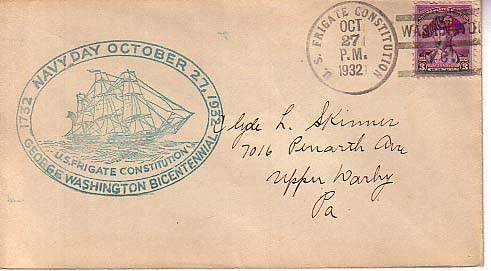 NAVY DAY OCTOBER 27, 1932
1732
U.S. FRIGATE CONSTITUTION
GEORGE WASHINGTON BICENTENNIAL
U. S. FRIGATE CONSTITUTION
OCT
27
P.M.
1932
WASHINGTON
3
3
Clyde L. Skinner
7016 Penarth Ave
Upper Darby
Pa